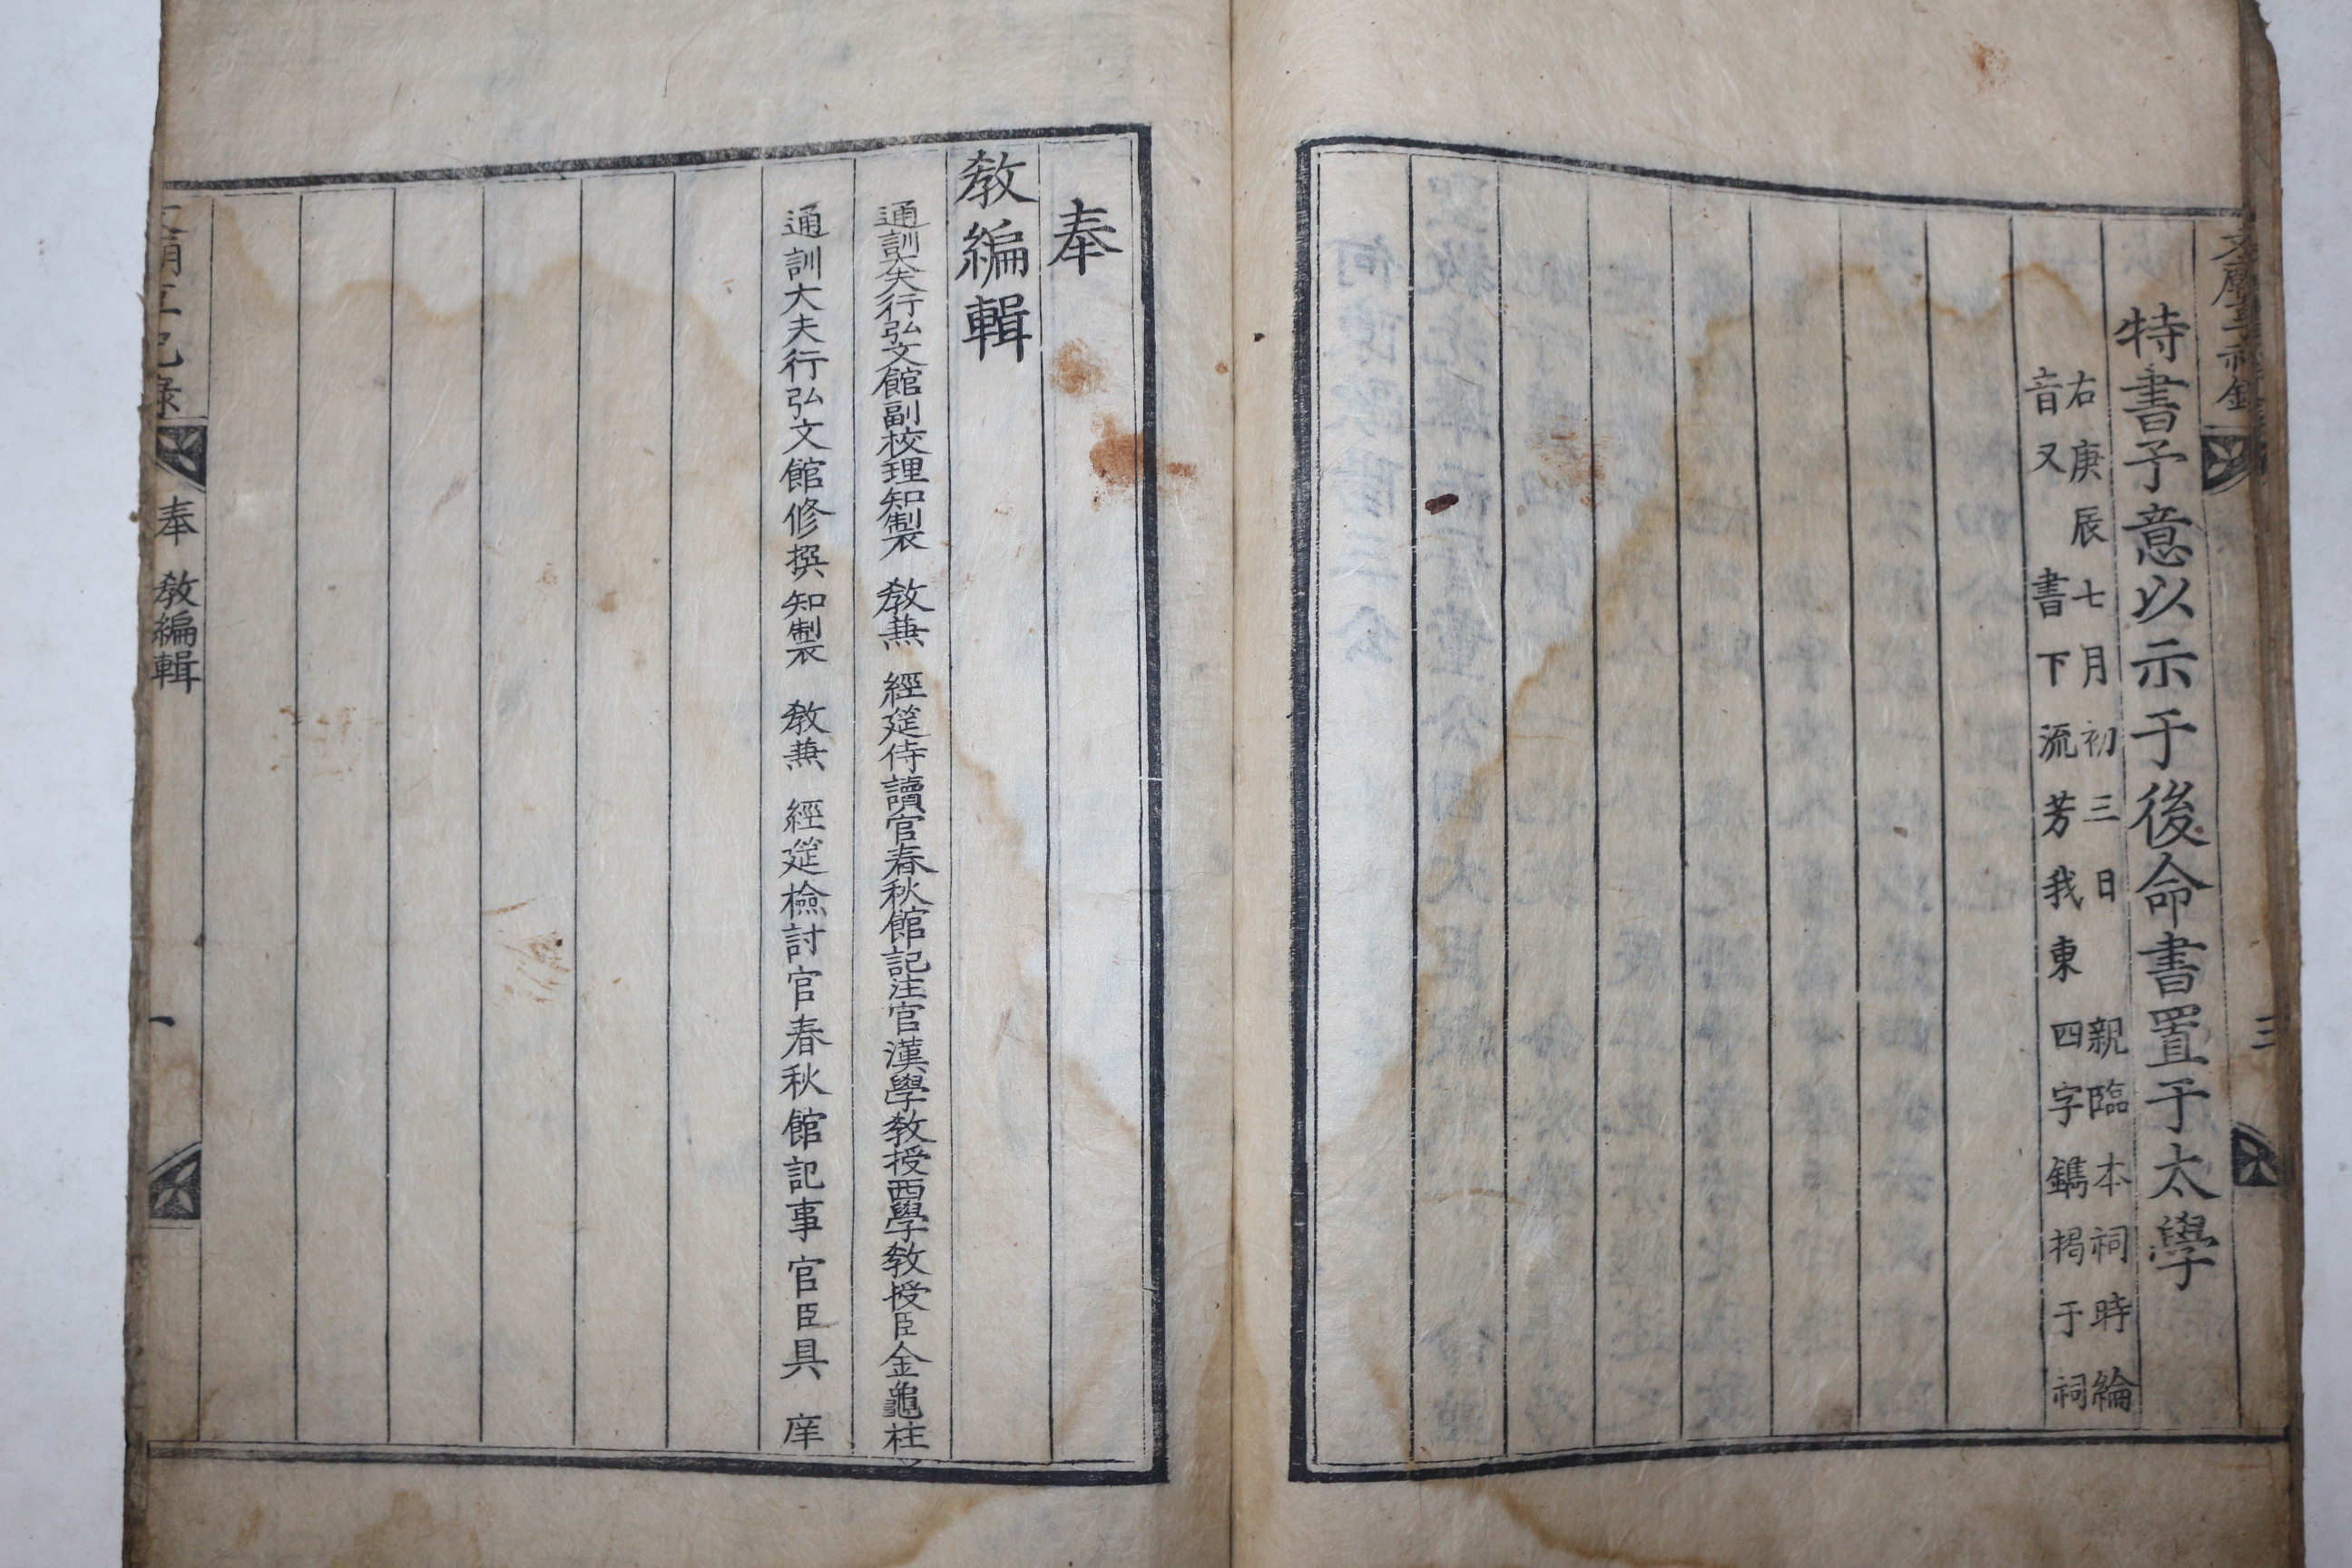 特書予意以示于後命書置于太學
右庚辰七月初三日親臨本祠時綸
音又書下流芳我東四字鐫揭于祠
三
奉
敎編輯
通訓大夫行弘文館副校理知製 敎兼 經筵侍讀官春秋館記注官漢學敎授西學敎授臣金龜柱
通訓大夫行弘文館修撰知製 敎兼 經筵檢討官春秋館記事官臣具 庠
奉 敎編輯
一